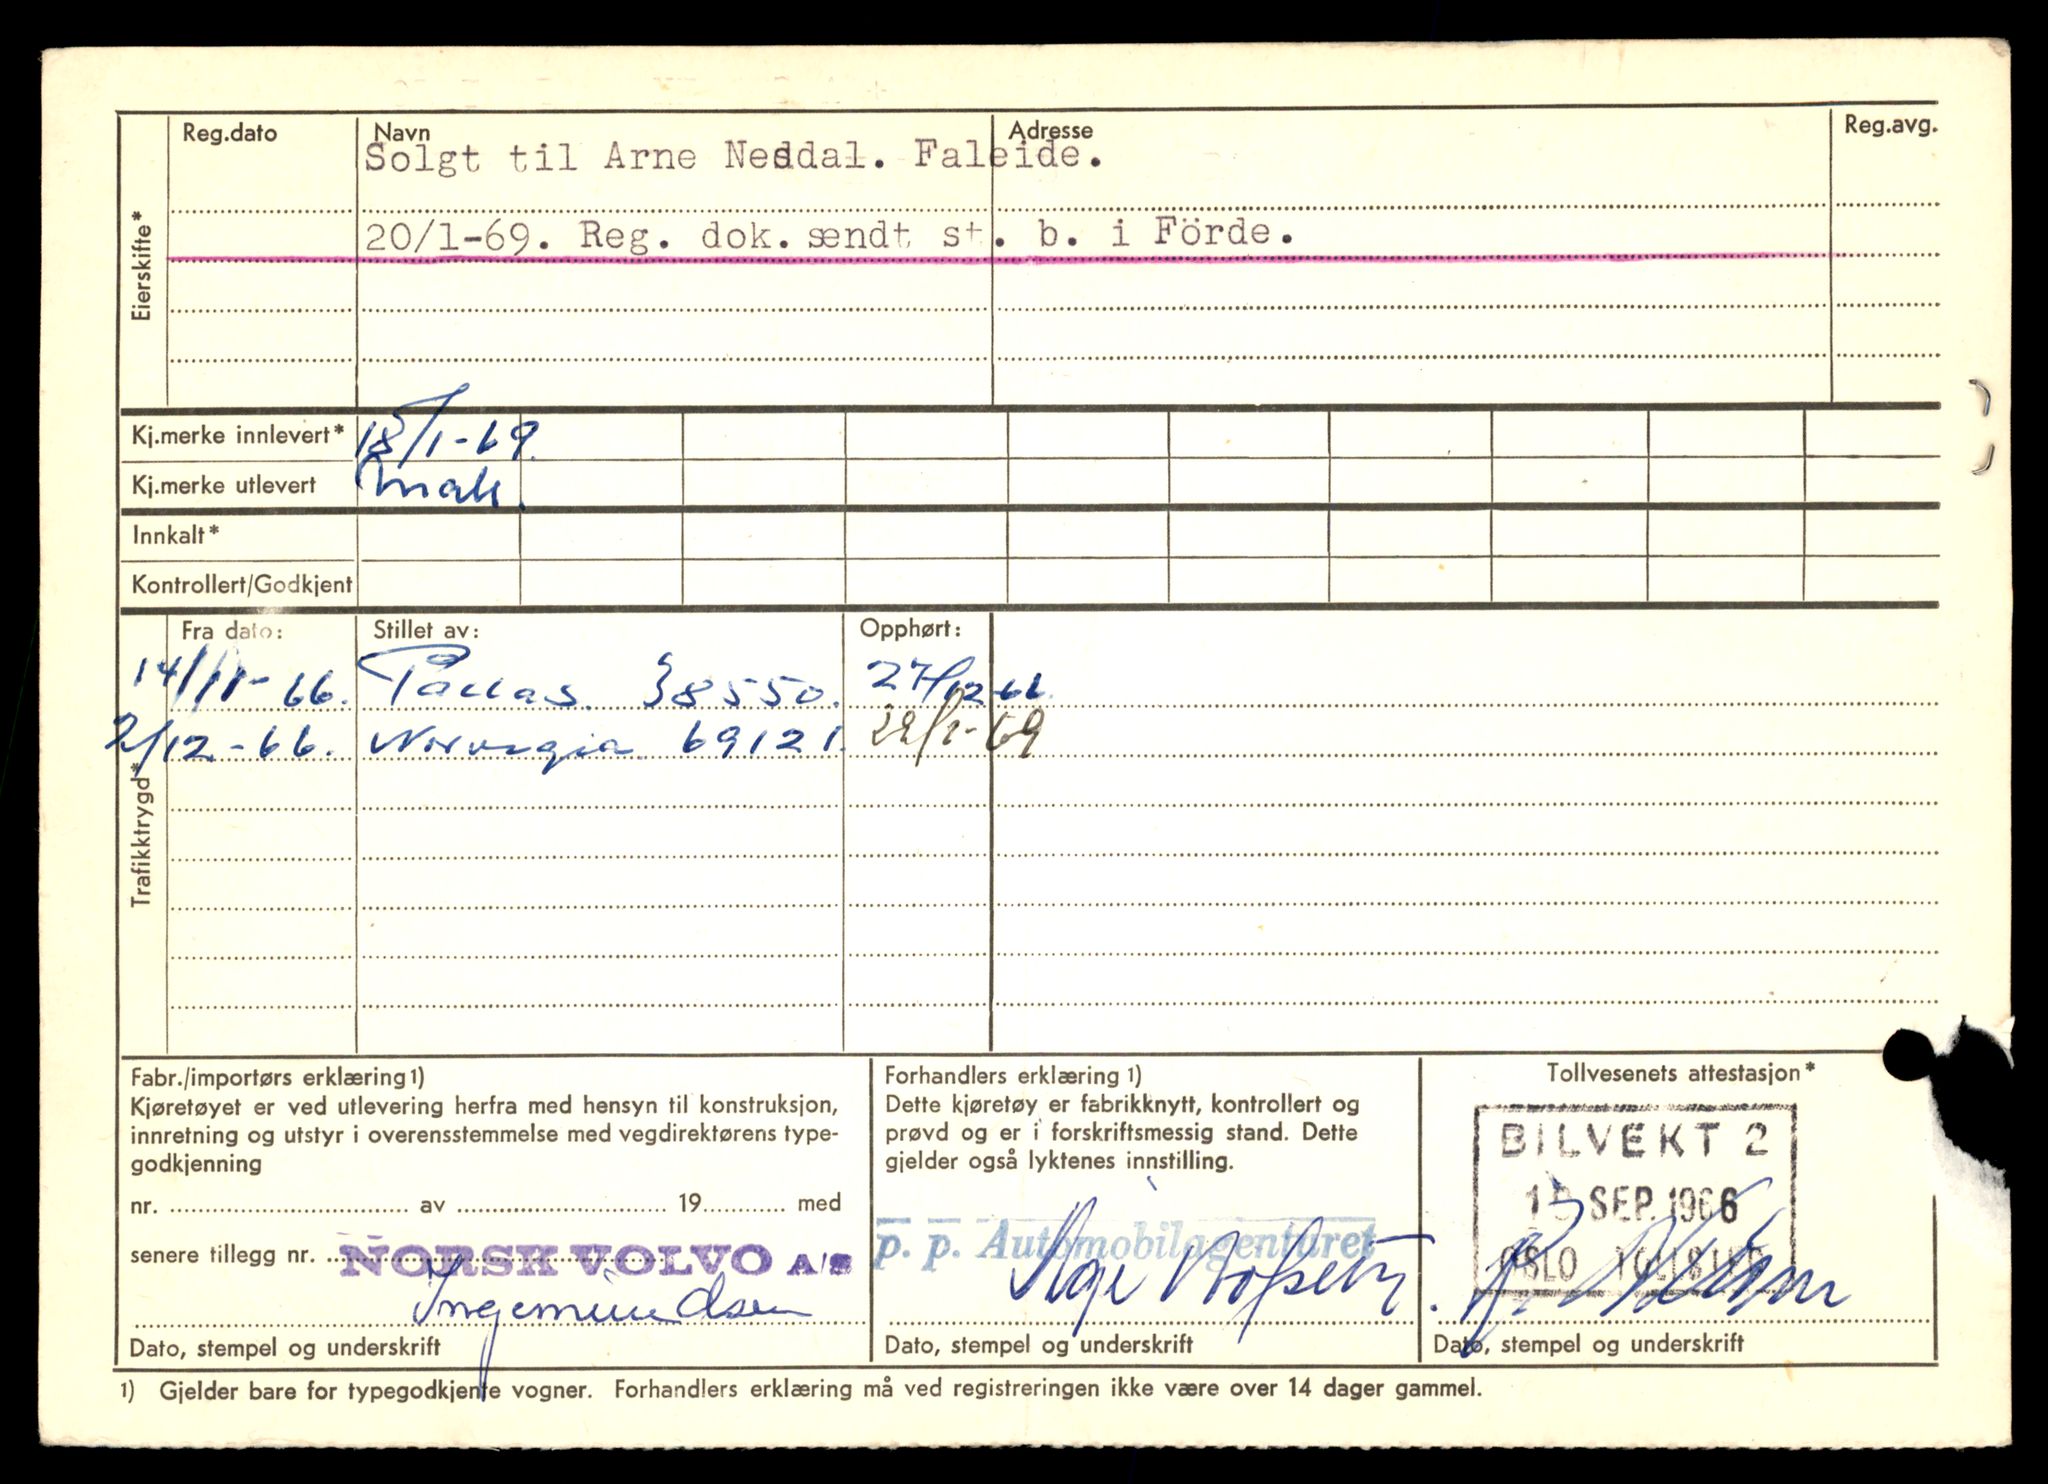 Reg.dato Navn Adresse Reg.avg.
Solgt til Arne Neddal. Faleide.
20/1-69. Reg. dok. sendt st. b. i Förde.
Eierskifte*
Kj.merke innlevert* 18/1-69.
Kj.merke utlevert
Innkalt*
Kontrollert/Godkjent
Trafikktrygd*
Fra dato: Stillet av: Opphørt:
14/11-66. Pallas 38550. 27/12-66.
2/12-66. Norvegia 69121. 22/1-69
Fabr./importørs erklæring 1)
Kjøretøyet er ved utlevering herfra med hensyn til konstruksjon,
innretning og utstyr i overensstemmelse med vegdirektørens type-
godkjenning
nr. av 19 med
senere tillegg nr. NORSK VOLVO A/S
Ingemundsen
Dato, stempel og underskrift
Forhandlers erklæring 1)
Dette kjøretøy er fabrikknytt, kontrollert og
prøvd og er i forskriftsmessig stand. Dette
gjelder også lyktenes innstilling.
p. p. Automobilagenturet
Dato, stempel og underskrift
Tollvesenets attestasjon*
BILVEKT 2
SEP. 1966
OSLO TOLLSTED
Dato, stempel og underskrift
1) Gjelder bare for typegodkjente vogner. Forhandlers erklæring må ved registreringen ikke være over 14 dager gammel.